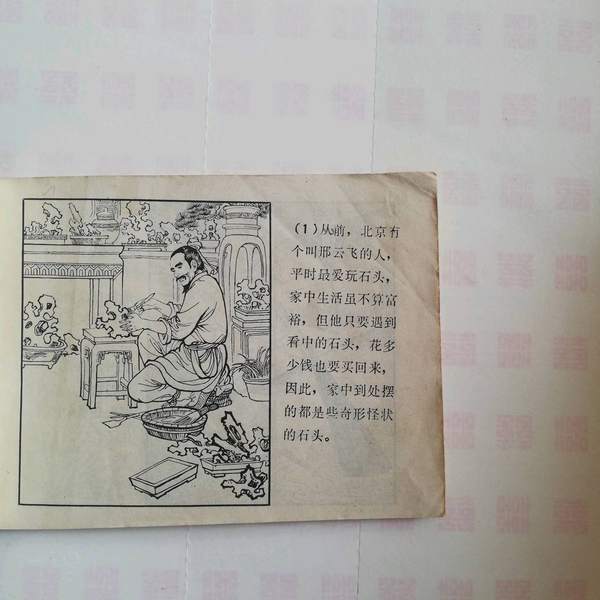 (1)从前，北京有
个叫邢云飞的人，
平时最爱玩石头，
家中生活虽不算富
裕，但他只要遇到
看中的石头，花多
少钱也要买回来，
因此，家中到处摆
的都是些奇形怪状
的石头。